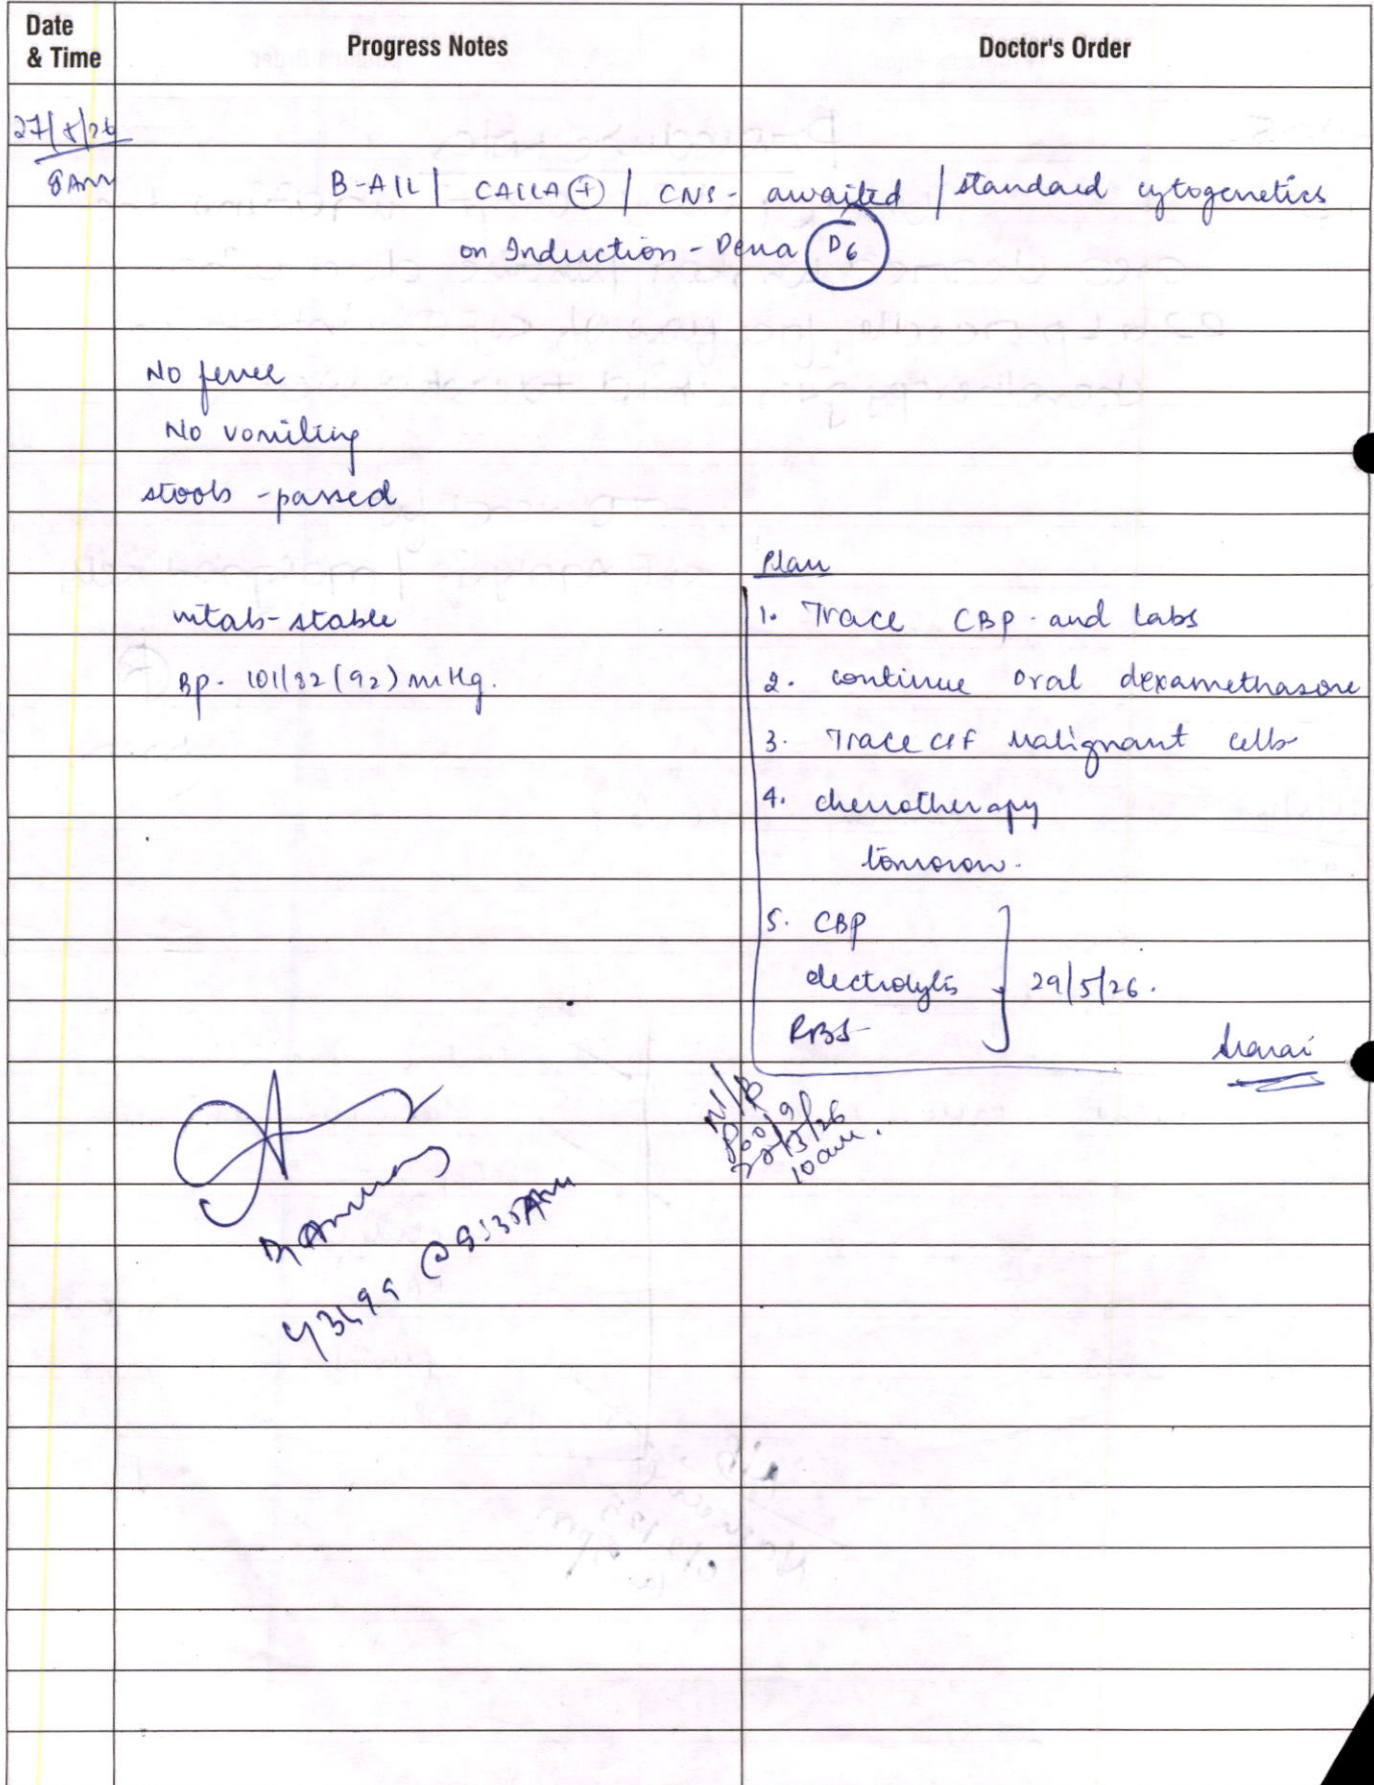 Date & Time
Progress Notes
Doctor's Order
27/5/26
8 Am
B-ALL | CALLA (+) | CNS - awaited | standard cytogenetics
on Induction - Dexa D6
No fever
No vomiting
stools - passed
Plan
vitals - stable
1. Trace CBP and labs
BP - 101/82 (92) mmHg.
2. continue oral dexamethasone
3. Trace CSF Malignant cells
4. chemotherapy
tomorrow.
5. CBP
electrolytes
29/5/26.
RBS
10 am.